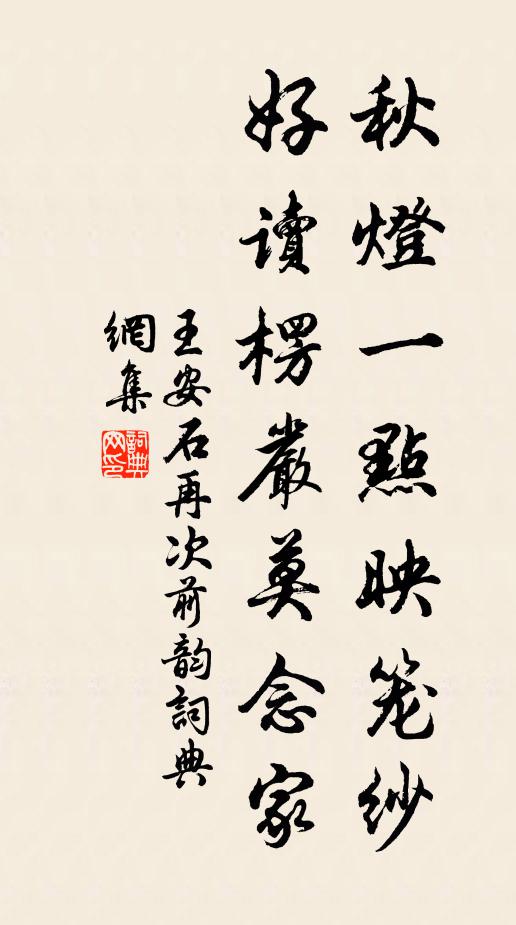 秋燈一點映笼紗
好讀楞嚴莫念家
王安石再次前韵詞典
網集
詞典网印